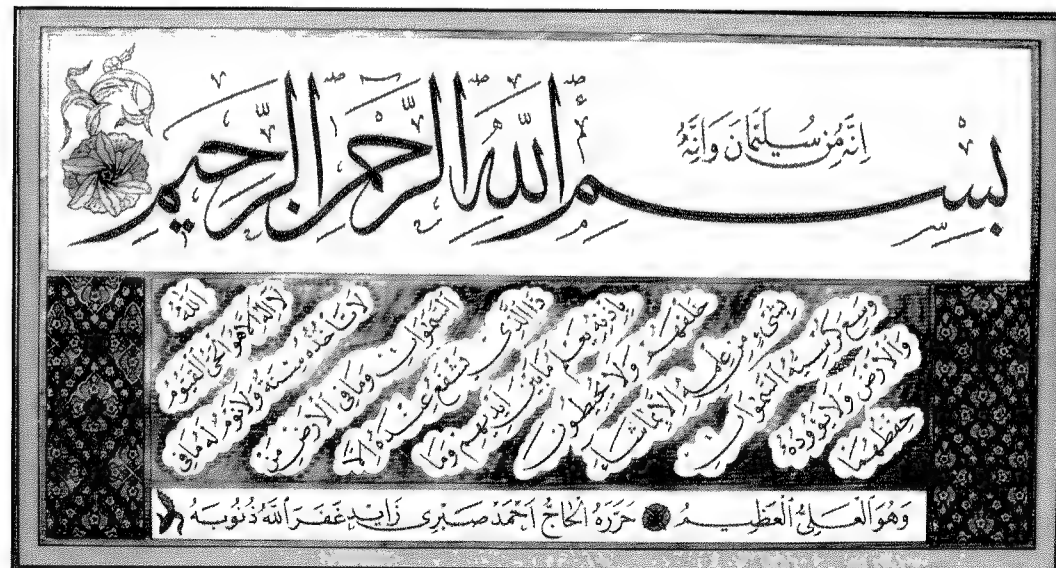 اِنَّهُ مِنْ سُلَيْمَانَ وَاِنَّهُ
بِسْمِ اللَّهِ الرَّحْمٰنِ الرَّحِيمِ
اَللّٰهُ
لَا اِلٰهَ اِلَّا هُوَ الْحَيُّ الْقَيُّومُ
لَا تَأْخُذُهُ سِنَةٌ وَلَا نَوْمٌ لَهُ مَا فِى
السَّمٰوَاتِ وَمَا فِى الْاَرْضِ مَنْ
ذَا الَّذِى يَشْفَعُ عِنْدَهُ اِلَّا
بِاِذْنِهِ يَعْلَمُ مَا بَيْنَ اَيْدِيهِمْ وَمَا
خَلْفَهُمْ وَلَا يُحِيطُونَ
بِشَىْءٍ مِنْ عِلْمِهِ اِلَّا بِمَا شَاءَ
وَسِعَ كُرْسِيُّهُ السَّمٰوَاتِ
وَالْاَرْضَ وَلَا يَؤُودُهُ
حِفْظُهُمَا
وَهُوَ الْعَلِىُّ الْعَظِيمُ حَرَّرَهُ الْحَاجّ اَحْمَد صَبْرِى زَايِد غَفَرَ اللّٰهُ ذُنُوبَهُ